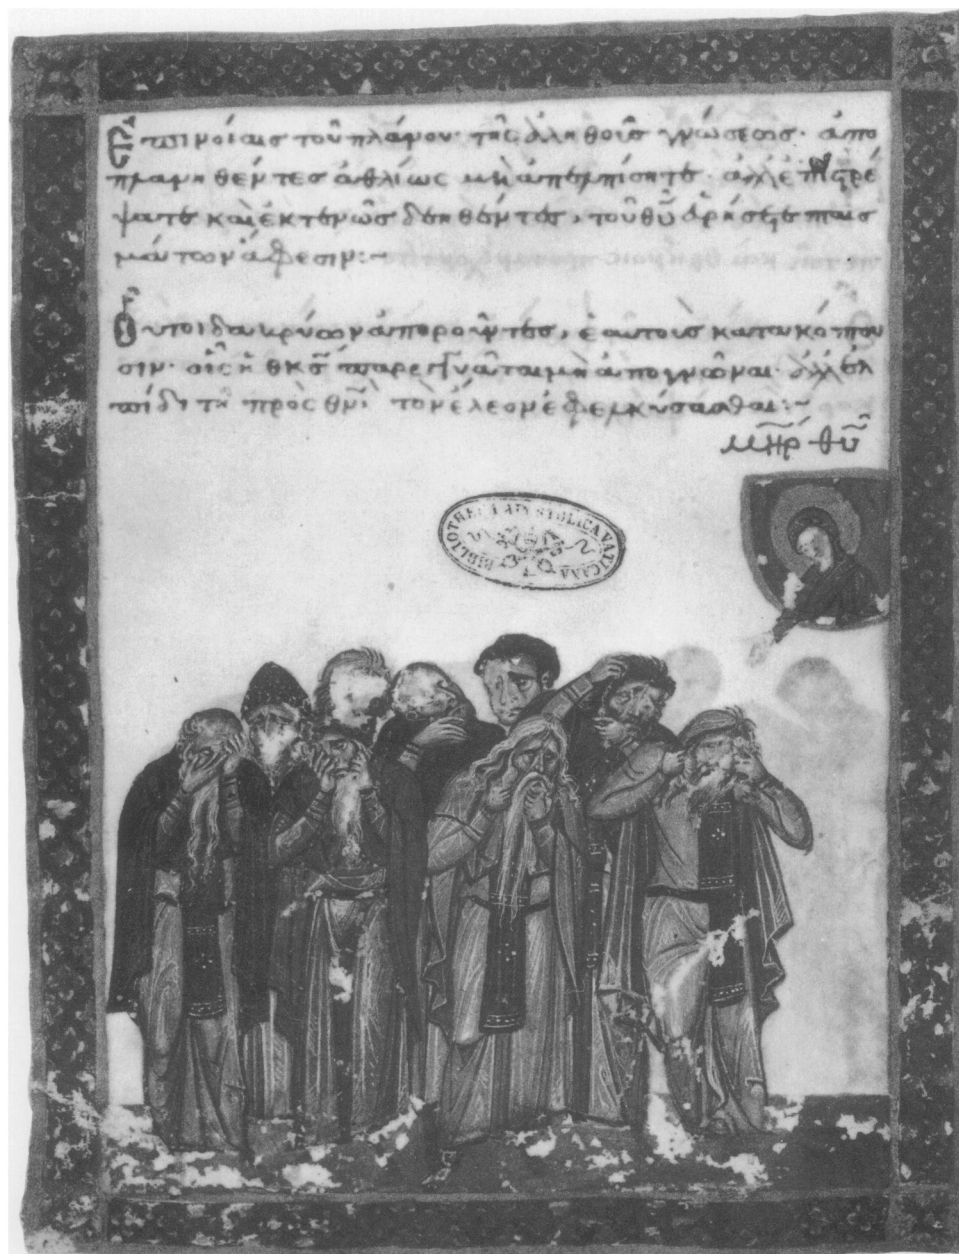 Ἐπινοίαις τοῦ πλάνου· τῆς ἀληθοῦς γνώσεως· ἀπο
πλανηθέντες ἀθλίως μὴ ἀπελπίσητε· ἀλλ' ἐπιστρέ
ψατε καὶ ἐκτενῶς δεηθέντες, τοῦ θῦ εὑρήσετε πταισ
μάτων ἄφεσιν:~
Οὗτοι δακρύων ἀποροῦντες, ἑαυτοὺς κατακόπτου
σιν· οἷς ἡ θκος παρεγγυᾶται μὴ ἀπογνῶναι· ἀλλ' ἐλ
πίδι τῇ πρὸς θν τὸν ἔλεον ἐφελκύσασθαι:~
ΜΗΡ ΘΥ
BIBLIOTHECA APOSTOLICA VATICANA